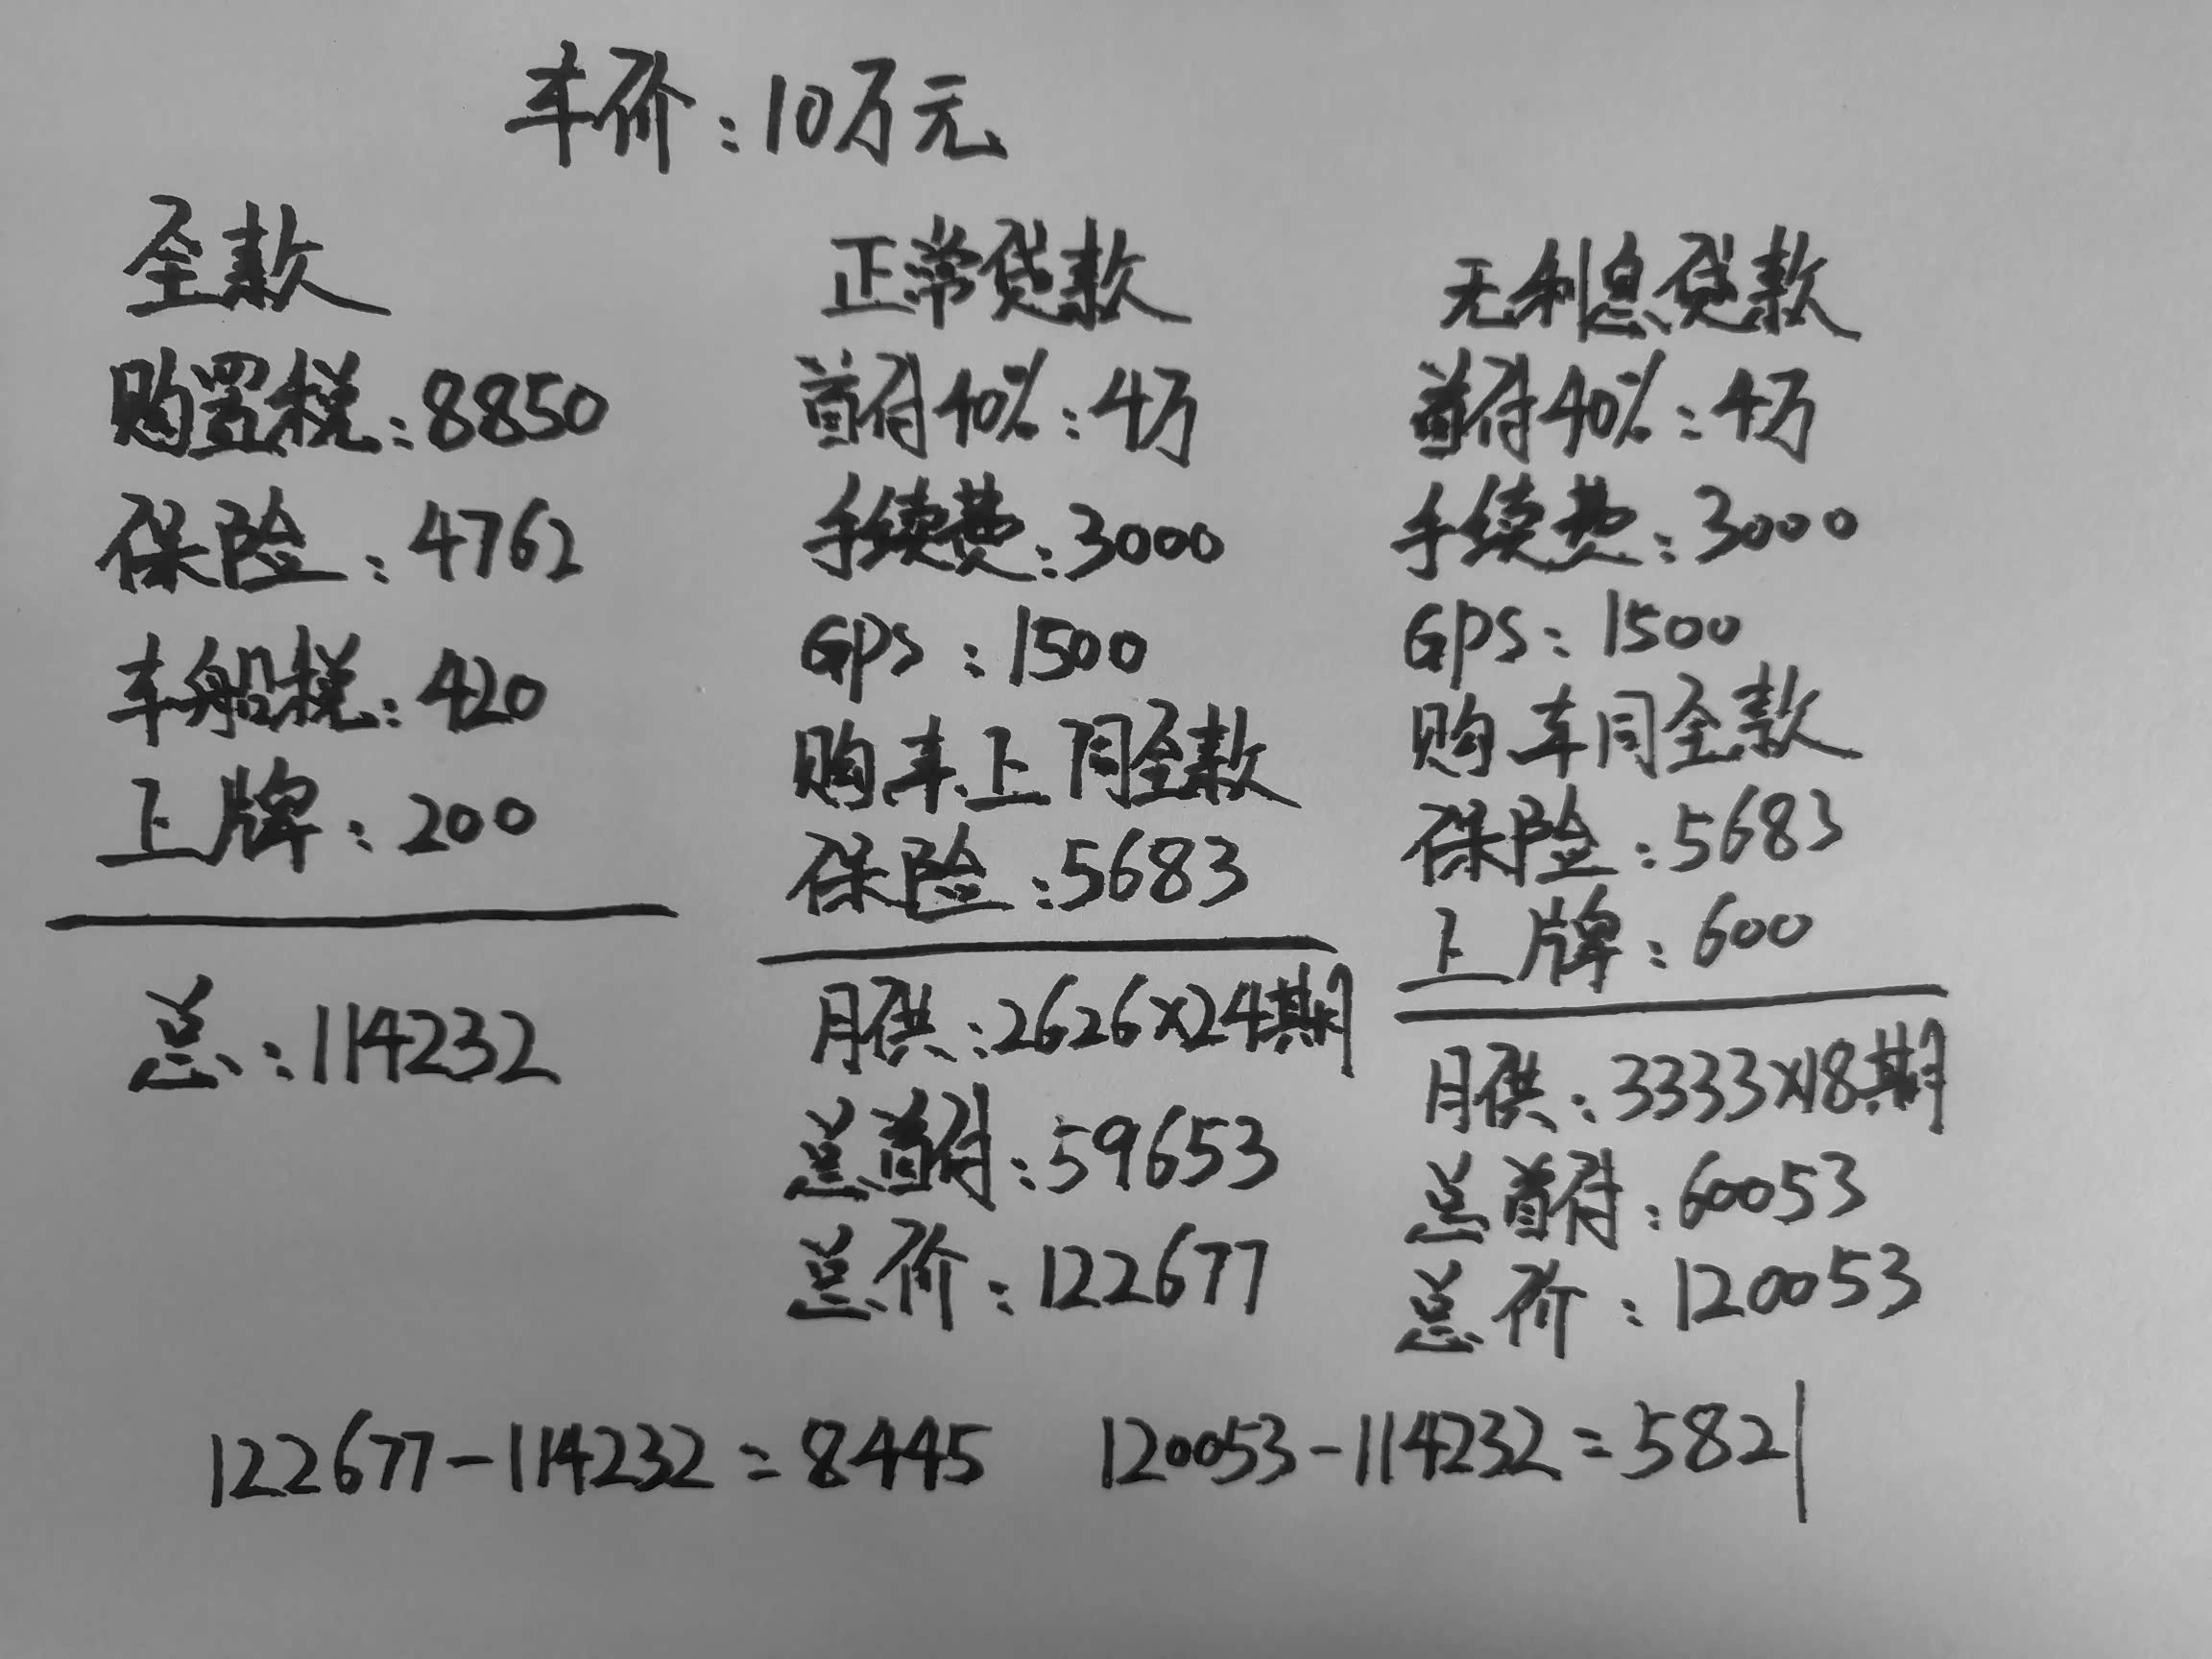 车价：10万元
全款
购置税：8850
保险：4762
车船税：420
上牌：200
总：114232
正常贷款
首付40%：4万
手续费：3000
GPS：1500
购车上同全款
保险：5683
月供：2626×24期
总首付：59653
总价：122677
无利息贷款
首付40%：4万
手续费：3000
GPS：1500
购车同全款
保险：5683
上牌：600
月供：3333×18期
总首付：60053
总价：120053
122677-114232=8445
120053-114232=5821